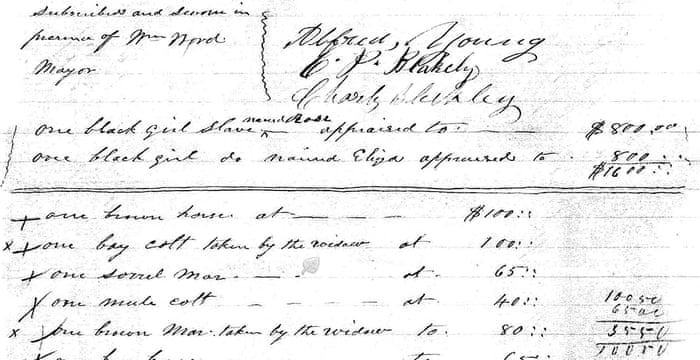 Subscribed and sworn in
presence of Wm Word
Mayor
Alfred, Young
C. P. Blakely
Charly Bleckley
one black girl slave named Rose appraised to $800.00
one black girl do named Eliza appraised to 800
$1600::
+ one brown horse at $100::
x + one bay colt taken by the widow at 100:
+ one sorrel mar at 65::
x one mule colt at 40::
x x one brown mar taken by the widow to 80::
10050
6500
3550
10050